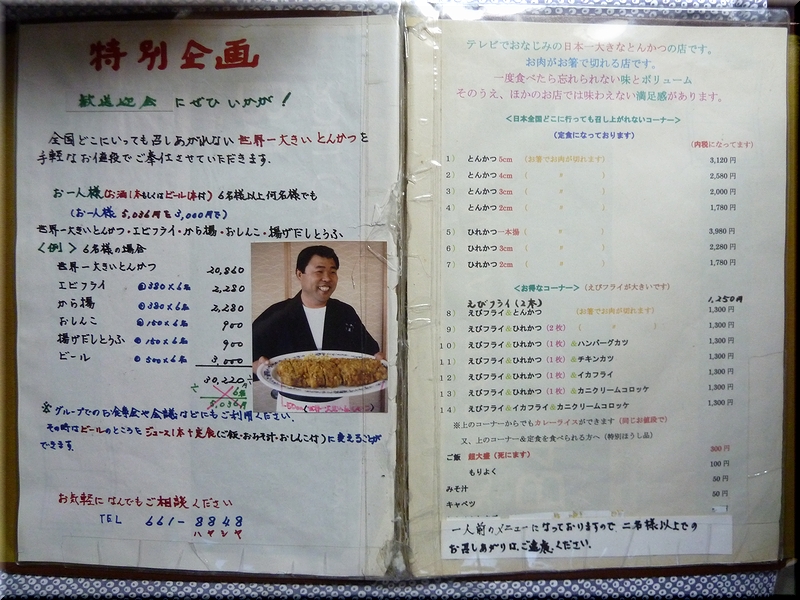 特別企画
歓送迎会 にぜひ いかが!
全国どこにいっても召しあがれない 世界一大きい とんかつを
手軽なお値段でご奉仕させていただきます。
お一人様(お酒1本もしくはビール1本付) 6名様以上何名様でも
(お一人様 5,036円を 5,000円で)
世界一大きいとんかつ・エビフライ・から揚・おしんこ・揚げだしとうふ
〈例〉 6名様の場合
世界一大きいとんかつ 20,860
エビフライ @380×6名 2,280
から揚 @380×6名 2,280
おしんこ @150×6名 900
揚げだしとうふ @150×6名 900
ビール @500×6名 3,000
30,220
÷ 6名
5,036円
※グループでのお食事会や会議などにもご利用ください。
その時はビールのところをジュース1本+定食(ご飯・おみそ汁・おしんこ付)に変えることが
できます。
お気軽になんでもご相談ください
TEL 661-8848
ハヤシヤ
テレビでおなじみの日本一大きなとんかつの店です。
お肉がお箸で切れる店です。
一度食べたら忘れられない味とボリューム
そのうえ、ほかのお店では味わえない満足感があります。
<日本全国どこに行っても召し上がれないコーナー>
(定食になっております)
(内税になってます)
1) とんかつ5cm (お箸でお肉が切れます) 3,120円
2) とんかつ4cm ( 〃 ) 2,580円
3) とんかつ3cm ( 〃 ) 2,000円
4) とんかつ2cm ( 〃 ) 1,780円
5) ひれかつ一本揚 ( 〃 ) 3,980円
6) ひれかつ3cm ( 〃 ) 2,280円
7) ひれかつ2cm ( 〃 ) 1,780円
<お得なコーナー>(えびフライが大きいです)
えびフライ(2本) 1,250円
8) えびフライ&とんかつ (お箸でお肉が切れます) 1,300円
9) えびフライ&ひれかつ(2枚) ( 〃 ) 1,300円
10) えびフライ&ひれかつ(1枚)&ハンバーグカツ 1,300円
11) えびフライ&ひれかつ(1枚)&チキンカツ 1,300円
12) えびフライ&ひれかつ(1枚)&イカフライ 1,300円
13) えびフライ&ひれかつ(1枚)&カニクリームコロッケ 1,300円
14) えびフライ&イカフライ&カニクリームコロッケ 1,300円
※上のコーナーからでもカレーライスができます(同じお値段で)
又、上のコーナー&定食を食べられる方へ(特別ほうし品)
ご飯 超大盛(死にます) 300円
もりよく 100円
みそ汁 50円
キャベツ 50円
一人前のメニューになっておりますので、二名様以上での
お召しあがりは、ご遠慮ください。